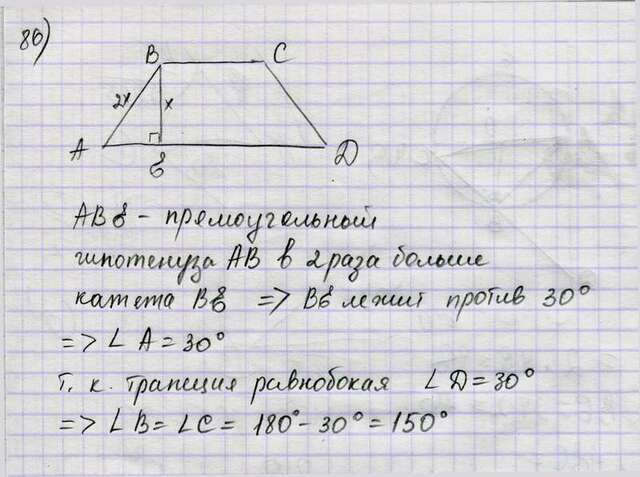 80)
B C
2x x
A D
АВ - прямоугольный
гипотенуза АВ в 2 раза больше
катета В => В лежит против 30°
=> ∠ А = 30°
т. к. трапеция равнобокая ∠ D = 30°
=> ∠ B = ∠ C = 180° - 30° = 150°